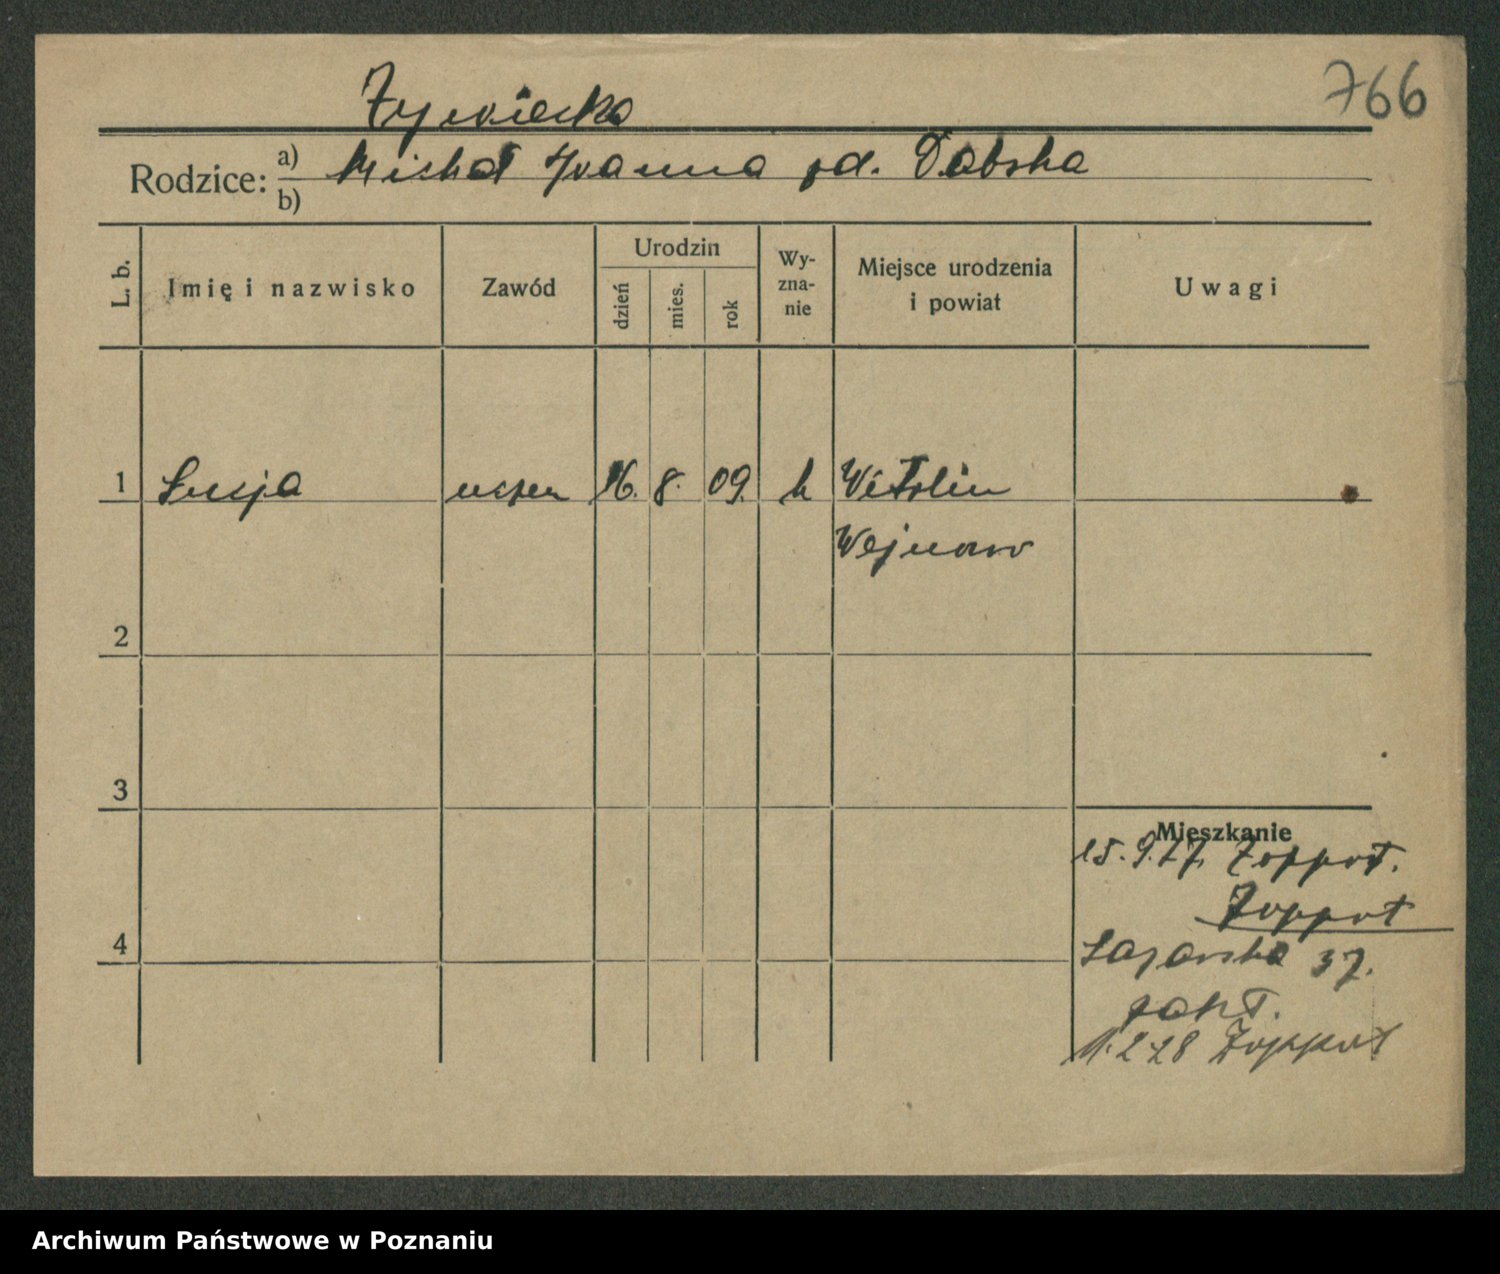 766
Żywiecka
Rodzice: a) Michał Joanna od. Dabska
b)
L. b.
Imię i nazwisko
Zawód
Urodzin
dzień
mies.
rok
Wy-
zna-
nie
Miejsce urodzenia
i powiat
Uwagi
1 Lucja uczen 16. 8. 09. k
Wejherow
2
3
4
Mieszkanie
15. 9. 27. Zoppot.
Zoppot
37.
1. 2 28 Zoppot
Archiwum Państwowe w Poznaniu